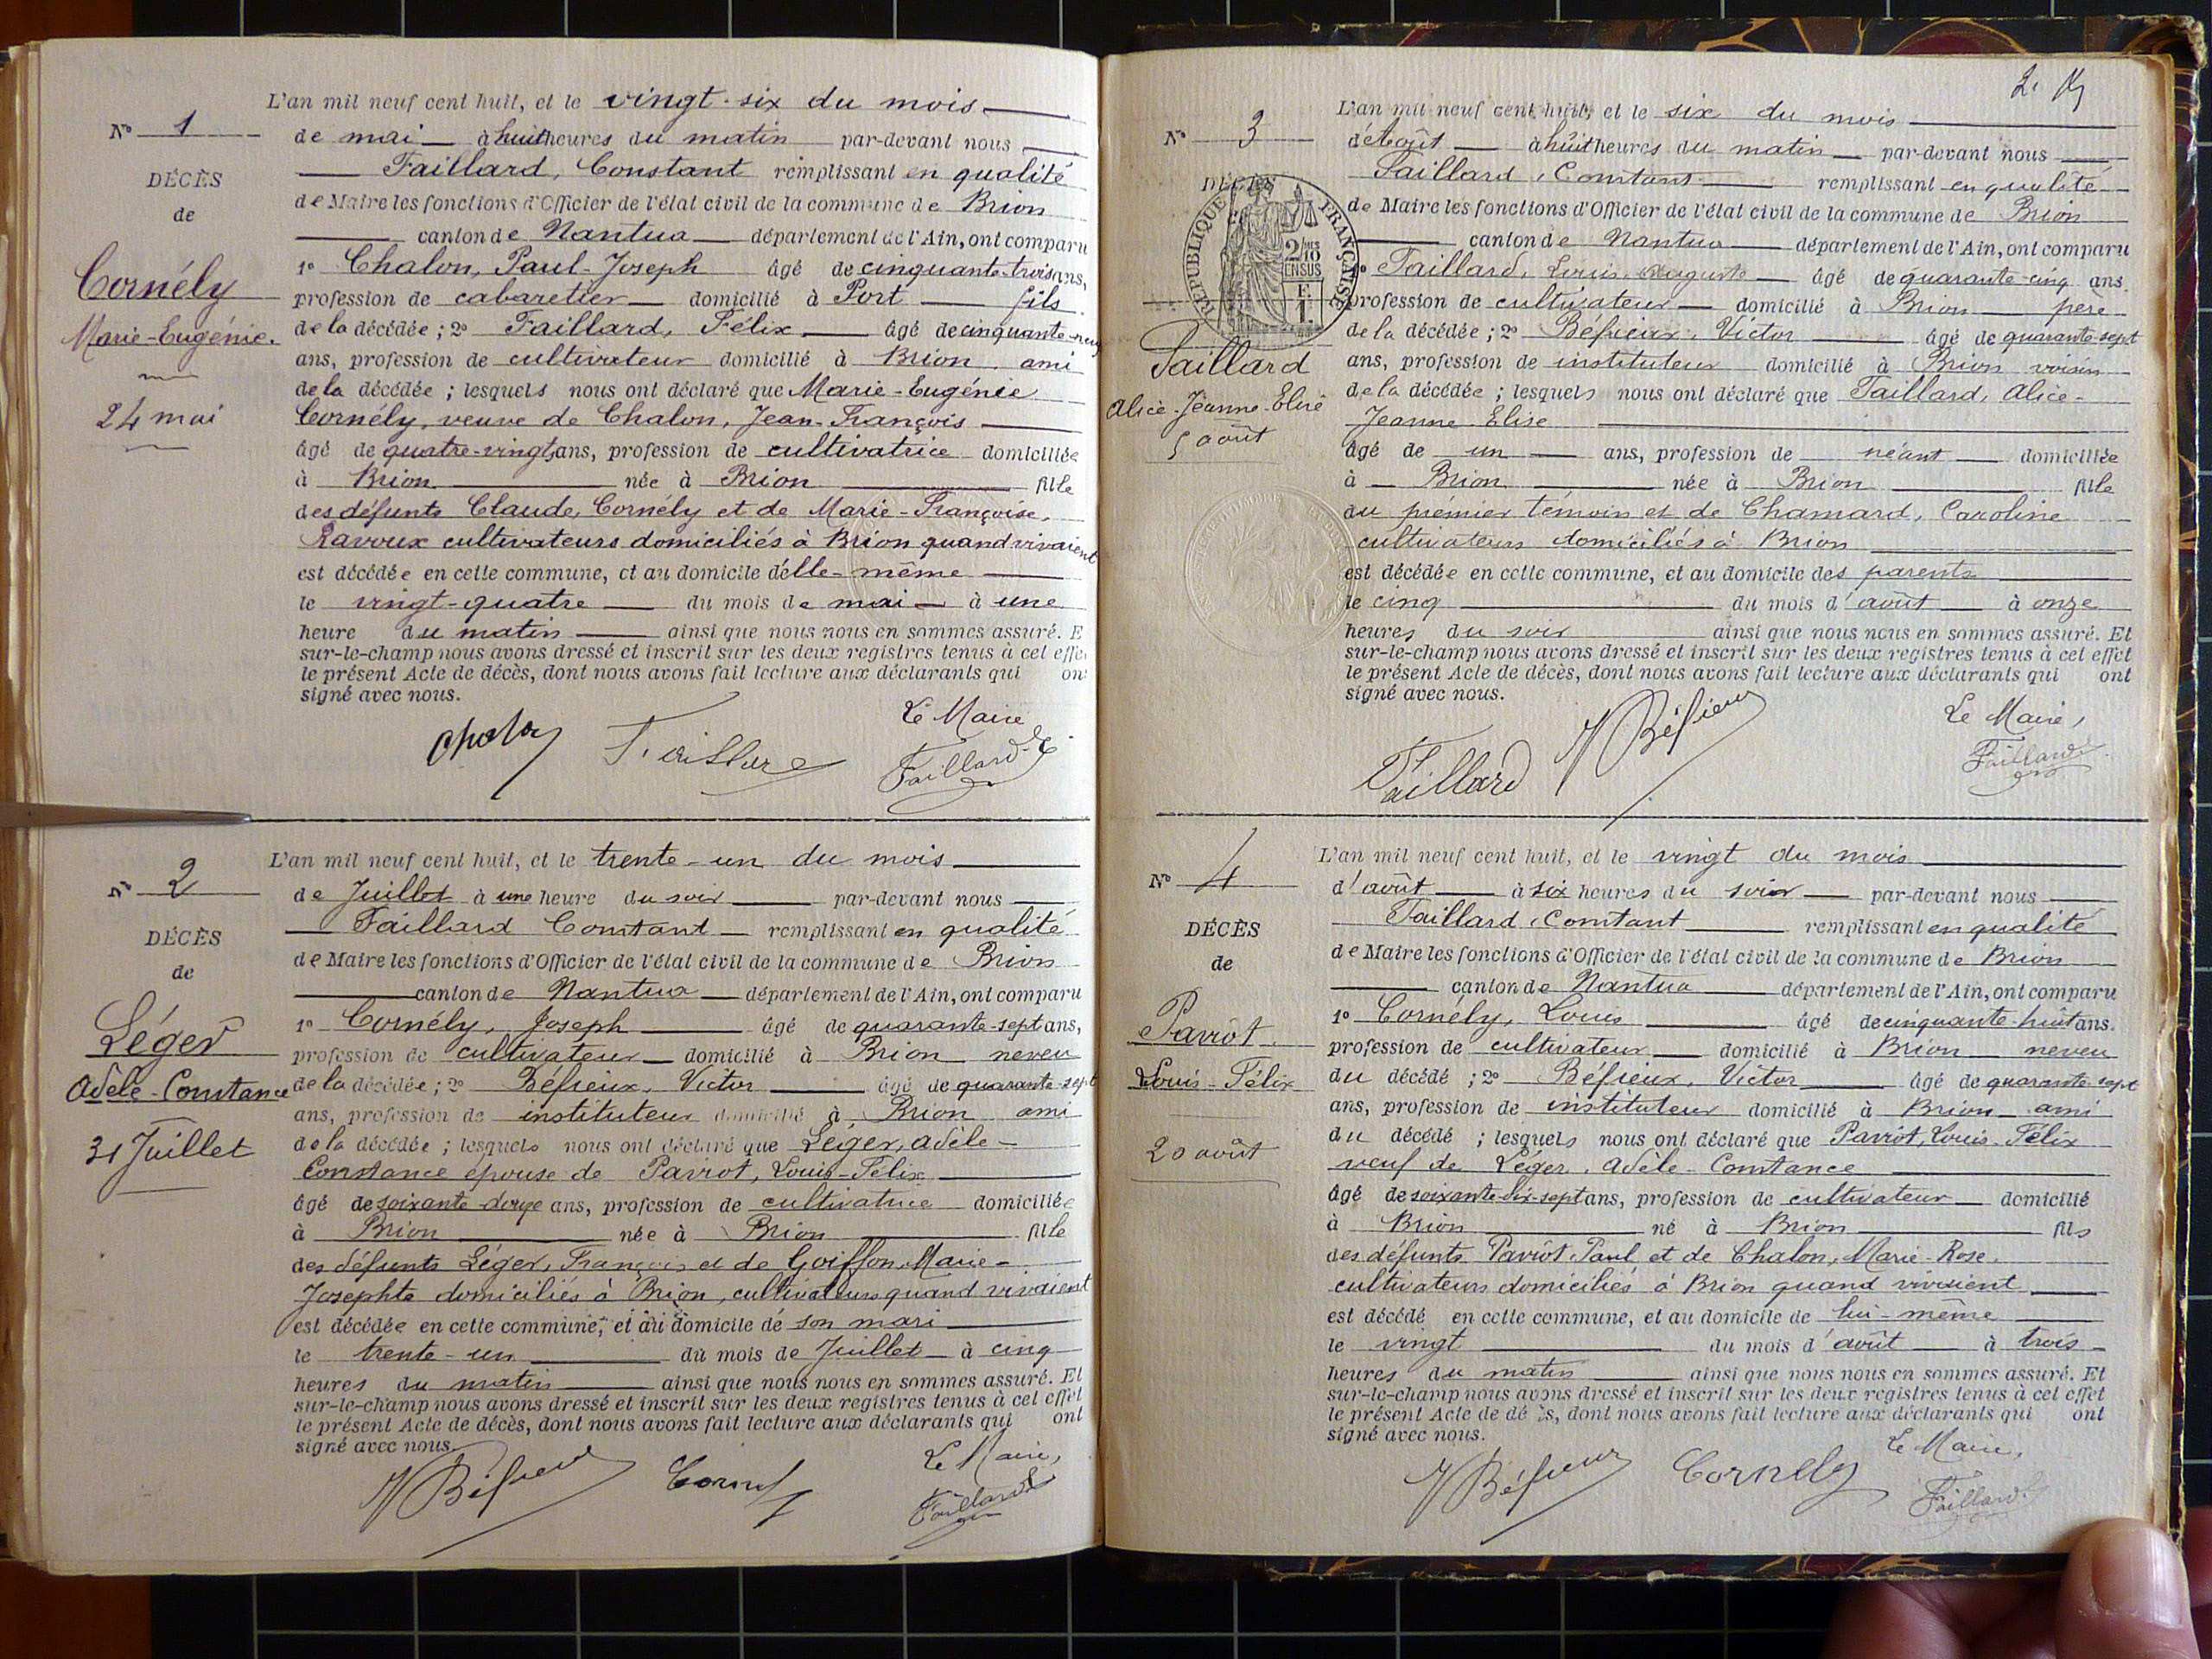 L'an mil neuf cent huit, et le vingt-six du mois
Nº 1
de mai à huit heures du matin par-devant nous
Faillard, Constant remplissant en qualité
DÉCÈS
de Maire les fonctions d'Officier de l'état civil de la commune de Brion
de
canton de Nantua département de l'Ain, ont comparu
1º Chalon, Paul-Joseph âgé de cinquante-trois ans,
Cornély
profession de cabaretier domicilié à Port fils
Marie-Eugénie.
de la décédée ; 2º Faillard, Félix âgé de cinquante-neuf
ans, profession de cultivateur domicilié à Brion ami
de la décédée ; lesquels nous ont déclaré que Marie-Eugénie
24 mai
Cornély, veuve de Chalon, Jean-François
âgé de quatre-vingts ans, profession de cultivatrice domiciliée
à Brion née à Brion fille
des défunts Claude, Cornély et de Marie-Françoise,
Ravoux cultivateurs domiciliés à Brion quand vivaient
est décédée en cette commune, et au domicile d'elle-même
le vingt-quatre du mois de mai à une
heure du matin ainsi que nous nous en sommes assuré. E
sur-le-champ nous avons dressé et inscrit sur les deux registres tenus à cet effe
le présent Acte de décès, dont nous avons fait lecture aux déclarants qui ont
signé avec nous.
Le Maire
Chalon Faillard Faillard C
L'an mil neuf cent huit, et le trente-un du mois
Nº 2
de Juillet à une heure du soir par-devant nous
Faillard Constant remplissant en qualité
DÉCÈS
de Maire les fonctions d'Officier de l'état civil de la commune de Brion
de
canton de Nantua département de l'Ain, ont comparu
1º Cornély, Joseph âgé de quarante-sept ans,
Léger
profession de cultivateur domicilié à Brion neveu
Adèle-Constance
de la décédée ; 2º Béfieux, Victor âgé de quarante-sept
ans, profession de instituteur domicilié à Brion ami
31 Juillet
de la décédée ; lesquels nous ont déclaré que Léger, Adèle-
Constance épouse de Pavrot, Louis-Félix
âgé de soixante-douze ans, profession de cultivatrice domiciliée
à Brion née à Brion fille
des défunts Léger, François et de Goiffon, Marie-
Josephte domiciliés à Brion, cultivateurs quand vivaient
est décédée en cette commune, et au domicile de son mari
le trente-un du mois de Juillet à cinq
heures du matin ainsi que nous nous en sommes assuré. Et
sur-le-champ nous avons dressé et inscrit sur les deux registres tenus à cet effet
le présent Acte de décès, dont nous avons fait lecture aux déclarants qui ont
signé avec nous.
Le Maire,
V Béfieux Cornély Faillard C
2.
L'an mil neuf cent huit, et le six du mois
Nº 3
d'Août à huit heures du matin par-devant nous
Faillard, Constant remplissant en qualité
DÉCÈS
RÉPUBLIQUE FRANÇAISE
2/10 EN SUS
F. 1.
de Maire les fonctions d'Officier de l'état civil de la commune de Brion
canton de Nantua département de l'Ain, ont comparu
1º Faillard, Louis-Auguste âgé de quarante-cinq ans.
profession de cultivateur domicilié à Brion père
Faillard
de la décédée ; 2º Béfieux, Victor âgé de quarante-sept
Alice-Jeanne-Elise
ans, profession de instituteur domicilié à Brion voisin
5 août
de la décédée ; lesquels nous ont déclaré que Faillard, Alice-
Jeanne-Elise
âgé de un ans, profession de néant domiciliée
à Brion née à Brion fille
du premier témoin et de Chamard, Caroline
cultivateurs domiciliés à Brion
est décédée en cette commune, et au domicile des parents
le cinq du mois d'août à onze
heures du soir ainsi que nous nous en sommes assuré. Et
sur-le-champ nous avons dressé et inscrit sur les deux registres tenus à cet effet
le présent Acte de décès, dont nous avons fait lecture aux déclarants qui ont
signé avec nous.
Le Maire,
Faillard V Béfieux Faillard C
L'an mil neuf cent huit, et le vingt du mois
Nº 4
d'août à six heures du soir par-devant nous
Faillard, Constant remplissant en qualité
DÉCÈS
de Maire les fonctions d'Officier de l'état civil de la commune de Brion
de
canton de Nantua département de l'Ain, ont comparu
1º Cornély, Louis âgé de cinquante-huit ans.
Pavrot
profession de cultivateur domicilié à Brion neveu
Louis-Félix
du décédé ; 2º Béfieux, Victor âgé de quarante-sept
ans, profession de instituteur domicilié à Brion ami
20 août
du décédé ; lesquels nous ont déclaré que Pavrot, Louis-Félix
veuf de Léger, Adèle-Constance
âgé de soixante-dix-sept ans, profession de cultivateur domicilié
à Brion né à Brion fils
des défunts Pavrot, Paul et de Chalon, Marie-Rose.
cultivateurs domiciliés à Brion quand vivaient
est décédé en cette commune, et au domicile de lui-même
le vingt du mois d'août à trois
heures du matin ainsi que nous nous en sommes assuré. Et
sur-le-champ nous avons dressé et inscrit sur les deux registres tenus à cet effet
le présent Acte de décès, dont nous avons fait lecture aux déclarants qui ont
signé avec nous.
Le Maire,
V Béfieux Cornély Faillard C